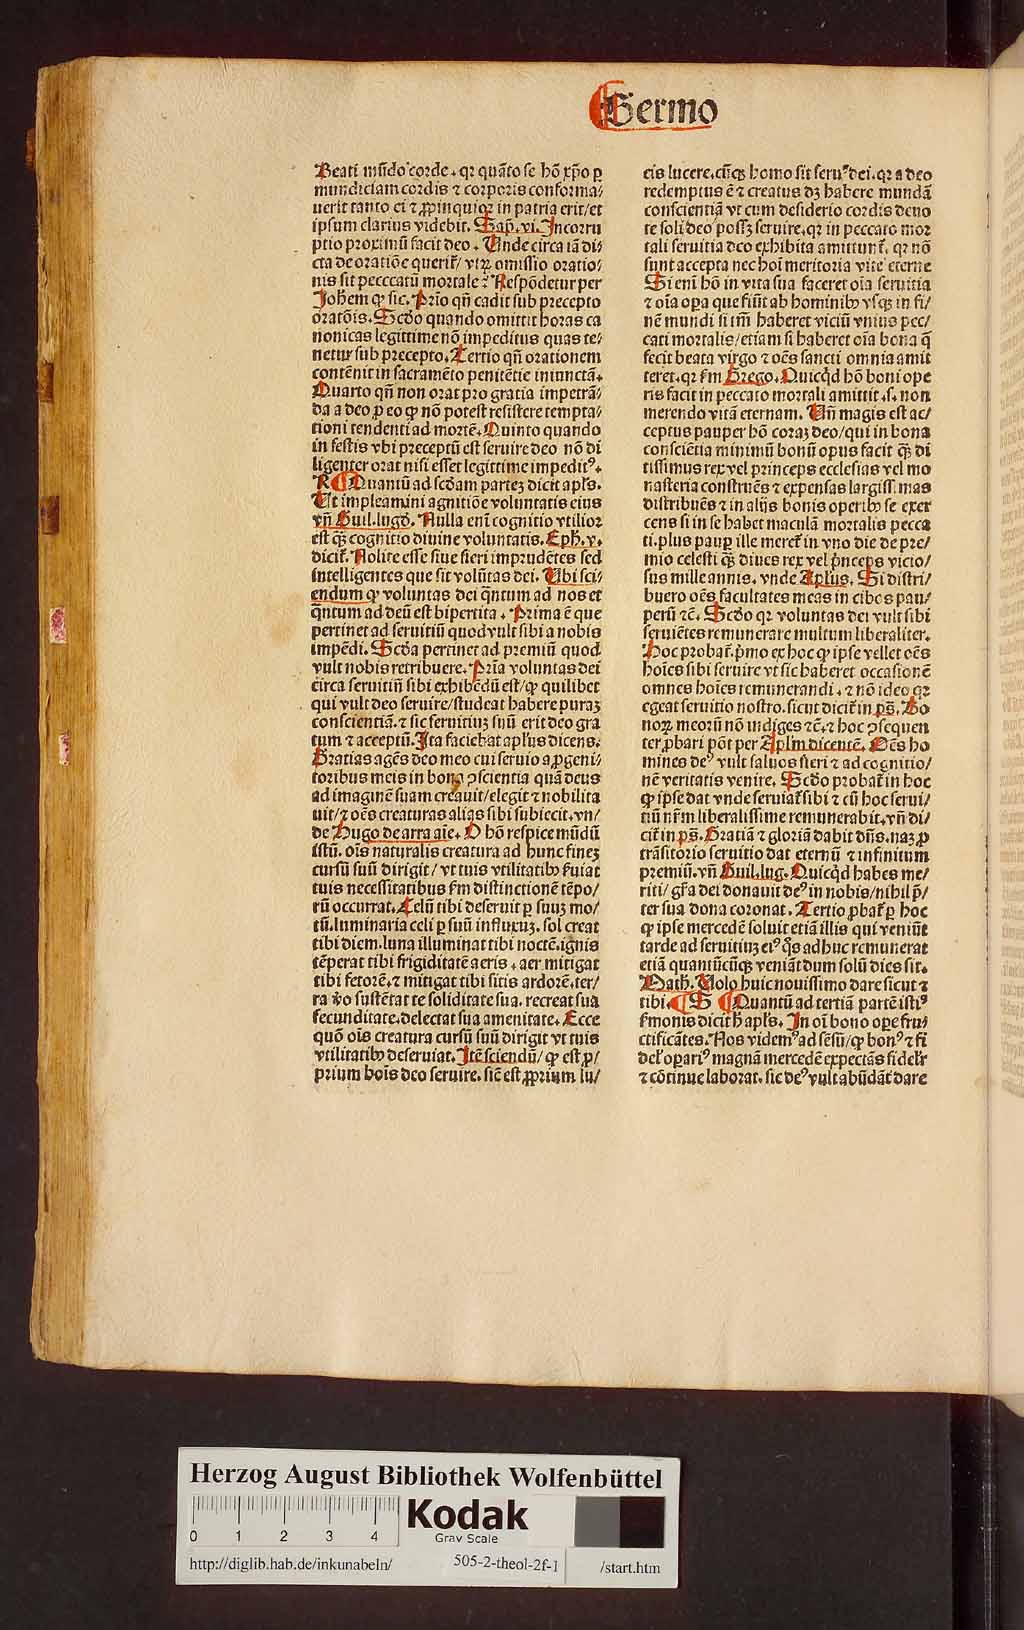 Sermo
Beati mūdo corde. qꝛ quāto se hō xp̄o ꝑ
mundiciam cordis ⁊ corporis conforma/
uerit tanto ei ⁊ ꝓpinquior in patria erit/et
ipsum clarius videbit. Sap. vi. Incorru
ptio proximū facit deo. Unde circa iā di/
cta de oratiōe querit̃/ vtꝝ omissio oratio/
nis sit pecccatū mortale ⁊ Respōdetur per
Johēm ꝙ sic. Prīo qñ cadit sub precepto
oratōis. Scd̄o quando omittit horas ca
nonicas legittime nō impeditus quas te/
netur sub precepto. Tertio qñ orationem
contēnit in sacramēto penitētie iniunctā.
Quarto qñ non orat pro gratia impetrā/
da a deo ꝓ eo ꝙ nō potest resistere tempta/
tioni tendenti ad mortē. Quinto quando
in festis vbi preceptū est seruire deo nō di
ligenter orat nisi esset legittime impeditꝰ.
R Quantū ad scd̄am partez dicit apl̄s.
Ut impleamini agnitiōe voluntatis eius
vñ Guil. lugd̄. Nulla enī cognitio vtilior
est qȝ cognitio diuine voluntatis. Eph. v.
dicit̃. Nolite esse siue fieri imprudētes sed
intelligentes que sit volūtas dei. Ubi sci/
endum ꝙ voluntas dei q̄ntum ad nos et
q̄ntum ad deū est bipertita. Prima ē que
pertinet ad seruitiū quod vult sibi a nobis
impēdi. Scd̄a pertinet ad premiū quod
vult nobis retribuere. Prīa voluntas dei
circa seruitiū sibi exhibēdū est/ꝙ quilibet
qui vult deo seruire/studeat habere puraȝ
conscientiā. ⁊ sic seruitiuȝ suū erit deo gra
tum ⁊ acceptū. Ita faciebat apl̄us dicens.
Gratias agēs deo meo cui seruio a ꝓgeni/
toribus meis in bona ꝯscientia quā deus
ad imaginē suam creauit/elegit ⁊ nobilita
uit/⁊ oēs creaturas alias sibi subiecit. vn/
de Hugo de arra aīe. O hō respice mūdū
istū. oīs naturalis creatura ad hunc fineȝ
cursū suū dirigit/ vt tuis vtilitatibꝰ ẜuiat
tuis necessitatibus ẜm distinctionē tēpo/
rū occurrat. Celū tibi deseruit ꝑ suuȝ mo/
tū. luminaria celi ꝑ suū influxuȝ. sol creat
tibi diem. luna illuminat tibi noctē. ignis
tēperat tibi frigiditatē aeris. aer mitigat
tibi fetorē. ⁊ mitigat tibi sitis ardorē. ter/
ra v̊o sustētat te soliditate sua. recreat sua
fecunditate. delectat sua amenitate. Ecce
quō oīs creatura cursū suū dirigit vt tuis
vtilitatibꝰ deseruiat. Itē sciendū/ ꝙ est ꝓ/
prium hoīs deo seruire. sic̄ est ꝓprium lu/
cis lucere. cūqȝ homo sit seruꝰ dei. qꝛ a deo
redemptus ē ⁊ creatus dȝ habere mundā
conscientiā vt cum desiderio cordis deuo
te soli deo possȝ seruire. qꝛ in peccato mor
tali seruitia deo exhibita amittunt̃. qꝛ nō
sunt accepta nec hoī meritoria vite eterne
Si enī hō in vita sua faceret oīa seruitia
⁊ oīa opa que fiūt ab hominibꝰ vsqȝ in fi/
nē mundi si tn̄ haberet viciū vnius pec/
cati mortalis/etiam si haberet oīa bona q̄
fecit beata virgo ⁊ oēs sancti omnia amit
teret. qꝛ ẜm Grego. Quicqd̄ hō boni ope
ris facit in peccato mortali amittit. s. non
merendo vitā eternam. Uñ magis est ac/
ceptus pauper hō coraȝ deo/qui in bona
conscīetia minimū bonū opus facit qȝ di
tissimus rex vel princeps ecclesias vel mo
nasteria construēs ⁊ expensas largiss̄mas
distribuēs ⁊ in alijs bonis operibꝰ se exer
cens si in se habet maculā mortalis pecca
ti. plus paup ille meret̃ in vno die de pre/
mio celesti qȝ diues rex vel p̄nceps vicio/
sus mille annis. vnde Apl̄us. Si distri/
buero oēs facultates meas in cibos pau/
perū ⁊c̄. Scd̄o qꝛ voluntas dei vult sibi
seruiētes remunerare multum liberaliter.
Hoc probat̃. p̄mo ex hoc ꝙ ipse vellet oēs
hoīes sibi seruire vt sic haberet occasionē
omnes hoīes remunerandi. ⁊ nō ideo qꝛ
egeat seruitio nostro. sicut dicit̃ in ps̄. Bo
noꝝ meorū nō indiges ⁊c̄. ⁊ hoc ꝯsequen
ter ꝓbari pōt per Apl̄m dicentē. Oēs ho
mines deꝰ vult saluos fieri ⁊ ad cognitio/
nē veritatis venire. Scd̄o probat̃ in hoc
ꝙ ipse dat vnde seruiat̃ sibi ⁊ cū hoc serui/
tiū nr̄m liberalissime remunerabit. vñ di/
cit̃ in ps̄. Gratiā ⁊ gloriā dabit dn̄s. naȝ ꝓ
trāsitorio seruitio dat eternū ⁊ infinitum
premiū. vñ Guil. lug. Quicqd̄ habes me/
riti/ gr̄a dei donauit deꝰ in nobis/nihil p̄/
ter sua dona coronat. Tertio ꝓbat̃ ꝑ hoc
ꝙ ipse mercedē soluit etiā illis qui veniūt
tarde ad seruitiuȝ eiꝰ q̄s adhuc remunerat
etiā quantūcūqȝ veniāt dum solū dies sit.
Math. Uolo huic nouissimo dare sicut ⁊
tibi. S Quantū ad tertiā partē istiꝰ
ẜmonis dicit h̄ apl̄s. In oī bono oꝑe fru/
ctificātes. Nos videmꝰ ad sēsū/ꝙ bonꝰ ⁊ fi
del' opariꝰ magnā mercedē expectās fidelr̄
⁊ cōtinue laborat. sic deꝰ vult abūdāt̃ dare
Herzog August Bibliothek Wolfenbüttel
0 1 2 3 4
Kodak
Gray Scale
http://diglib.hab.de/inkunabeln/ 505-2-theol-2f-1 /start.htm